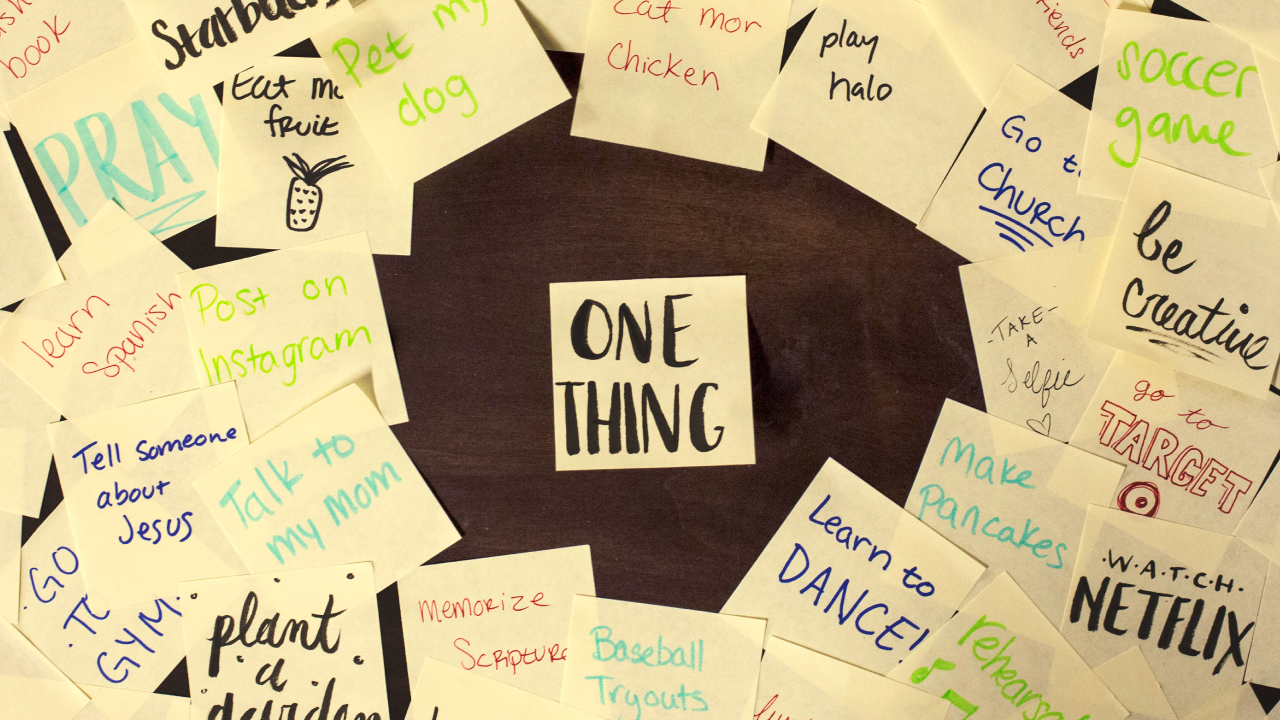 book
Starbucks
PRAY
Eat
fruit
Pet my
dog
Eat mor
Chicken
play
halo
Go t
Church
soccer
game
be
creative
learn
Spanish
Post on
Instagram
ONE
THING
-TAKE-
A
Selfie
go to
TARGET
Tell someone
about
Jesus
Talk to
my Mom
Make
Pancakes
Learn to
DANCE!
·W·A·T·C·H·
NETFLIX
GO
TO
GYM
plant
a
garden
Memorize
Scripture
Baseball
Tryouts
rehearsal